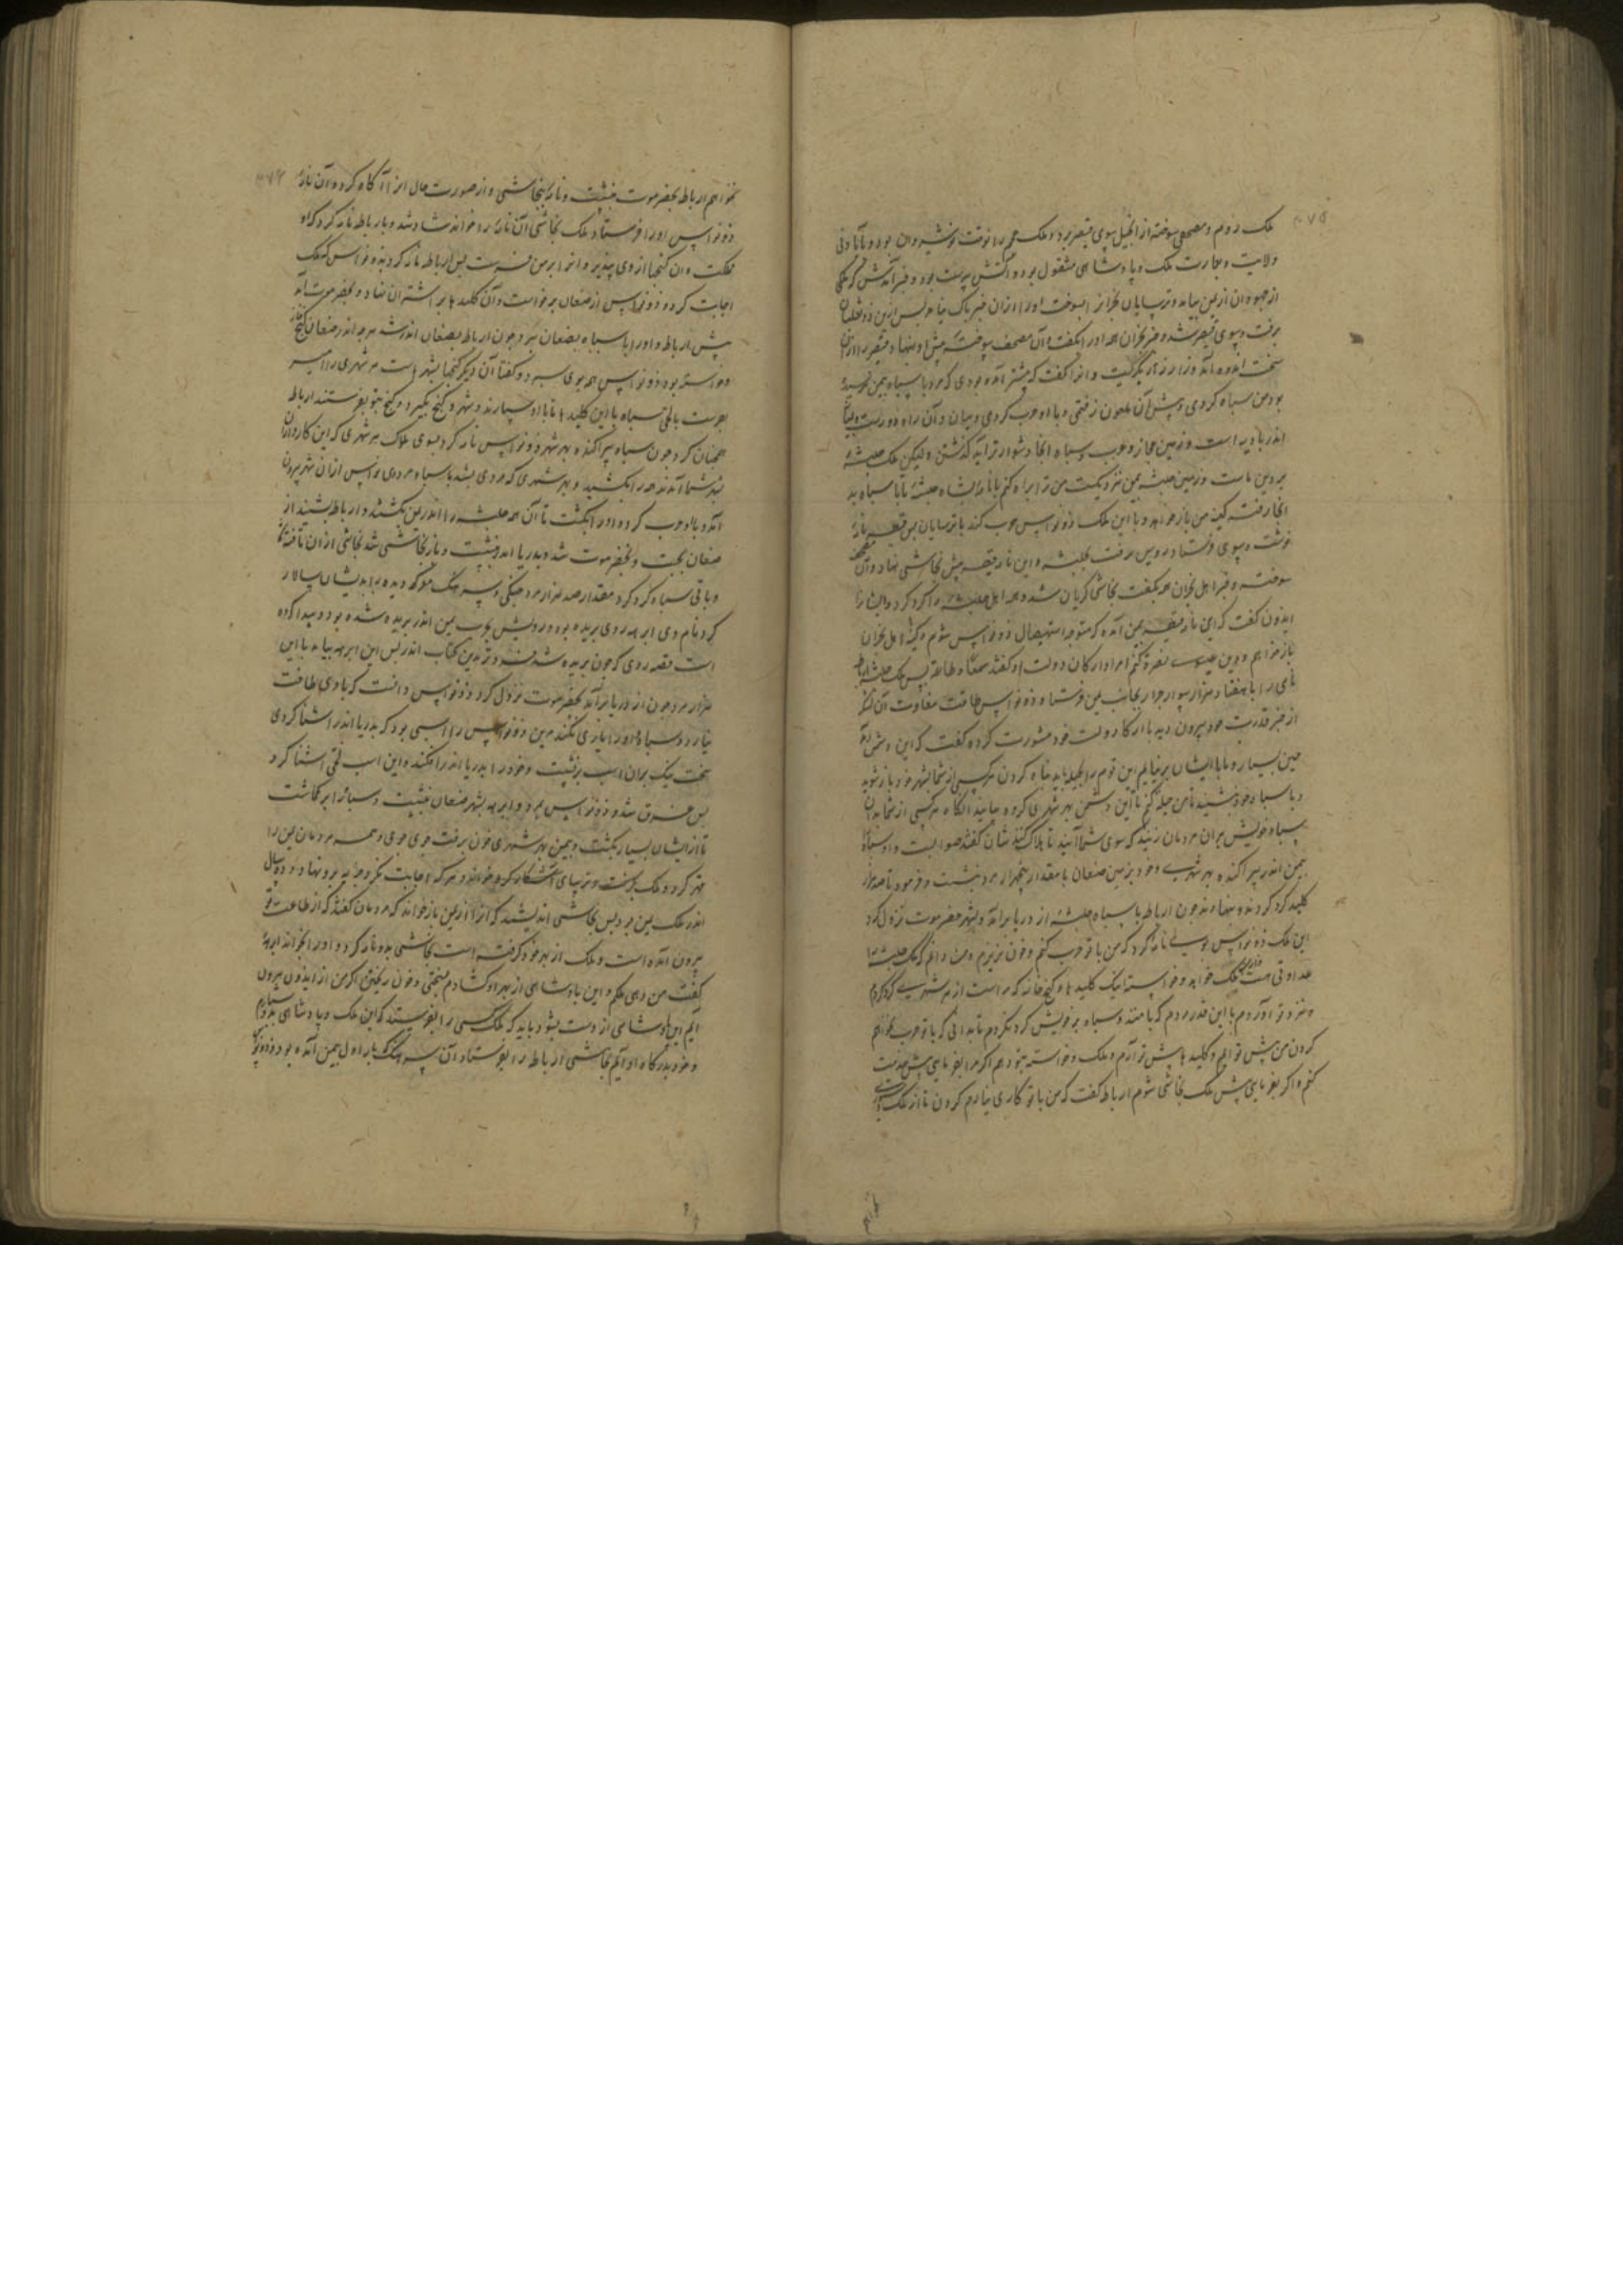 ۳۷۵
ملک روم و مصحفی سوخته از انجیل سوی قیصر برد و ملک عجم را نوقت نوشیروان بود و بآبادنی
ولایت و عمارت ملک و پادشاهی مشغول بود و آتش پرست بود و خبر آمدش که ملکی
از جهودان از یمن بیامد و ترسایان نجران را بسوخت او را ازان خبر باک نیامد پس ازین ذو ثعلبان
برفت و سوی قیصر شد و خبر نجران همه او را بگفت و آن مصحف سوخته پیش او بنهاد قیصر را ازان
سخت اندوه آمد و زار زار بگریست و او را گفت که پیشتر آمده بودی که مرد با سپاه یمن
بود من سپاه کردی و پیش آن ملعون رفتمی و با او حرب کردمی و میان و آن راه دورست و بیابان
اندر بادیه است و زمین حجاز و عرب و سپاه انجا دشوار تر آید گذشتن ولیکن ملک حبشه
بر دین ماست و زمین حبشه بیمن نزدیکست من ترا براه کنم با نامه بشاه حبشه تا با سپاه به
انجا رفته کینه من باز خواهد و با این ملک ذونواس حرب کند با ترسایان پس قیصر نامه
نوشت و سوی فرستاد و اویس برفت بحبشه و این نامه قیصر پیش نجاشی نهاد و آن مصحف
سوخته و خبر اهل نجران همه بگفت نجاشی گریان شد و همه اهل حبشه را گرد کرد و ایشانرا
ایدون گفت که این نامه قیصر بمن آمده که متوجه استیصال ذونواس شوم و کینه اهل نجران
باز خواهم و دین عیسی نصرة کنم امرا و ارکان دولت او گفتند سمعا و طاعة پس ملک حبشه ارباط
نامی را با هفتاد هزار سوار جرار بجانب یمن فرستاد و ذونواس طاقت مقاومت آن لشکر
از خیز قدرت خود بیرون دید با ارکان دولت خود مشورت کرده گفت که این دشمن آمد
چنین بسیار و ما با ایشان برنیائیم این قوم را بحیله باید تباه کردن هر کسی از شما بشهر خود باز شوید
و با سپاه خود بنشینید تا من حیله کنم تا این دشمن بهر شهری گروه جایند انگاه هر کسی از شما بدان
سپاه خویش بران مردمان زنید که سوی شما آیند تا هلاک کنندشان گفتند صوابست و او سپاه
بیمن اندر پراکنده بهر شهری و خود بزمین صنعان با مقدار پنجهزار مرد بنشست و فرمود تا صد هزار
کلید گرد کردند و بنهادند چون ارباط با سپاه حبشه از دریا برآمد و بشهر حضرموت نزول کرد
این ملک ذونواس بوی نامه کرد که من با تو حرب نکنم و خون نریزم و من دانم که ملک حبشه را
عداوتی هست ملک خواهد و خواسته اینک کلید ها و گنج خانه که مراست از هر شهری گرد کردم
و نزد تو آوردم با این قدر مردم که با منند و سپاه بر خویش گرد نکردم تا بدانی که با تو حرب نخواهم
کردن من پیش تو ایم و کلید ها پیش تو آرم و ملک و خواسته بتو دهم اگر مرا بفرمایی پیش خدمت
کنم و اگر بفرمایی پیش ملک نجاشی شوم ارباط گفت که من با تو کاری نیارم کردن تا از ملک
۳۷۶
نخواهم ارباط بحضرموت بنشست و نامه بنجاشی و از صورت حال او را آگاه کرد و آن نامه
ذونواس او را فرستاد ملک نجاشی آن نامه را خواند شاد شد و بارباط نامه کرد که او
ملکت و ان گنجها از وی پذیر و او را بر من فرست پس ارباط نامه کرد بذونواس که ملک
اجابت کرد و ذونواس از صنعان برخواست و آن کلید ها بر اشتران نهاد و بحضرموت آمد
پیش ارباط و او را با سپاه بصنعان برد چون ارباط بصنعان اندر شد هر چه اندر صنعان گنج خانه
و خواسته بود ذونواس همه بوی سپرد و گفتا آن دیگر گنجها بشهرهاست هر شهری را امیر
بفرست با لختی سپاه با این کلید ها تا باو سپارند و شهر و گنج بگیرد و گنج بتو بفرستند ارباط
همچنان کرد چون سپاه پراکنده بهر شهر ذونواس نامه کرد بسوی ملوک هر شهری که این کارداران
نزد شما آمدند همه را بکشید و بهر شهری که مردی بشد با سپاه مردی نواس ازان شهر بیرون
آمد و با او حرب کرد و او را بکشت تا آن همه حبشه را اندر یمن بکشتند و ارباط بشنید از
صنعان بجست و بحضرموت شد و بدریا اندر نشست و باز نجاشی شد نجاشی ازان تافته شد
و باقی سپاه گرد کرد مقدار صد هزار مرد جنگی و سرهنگ معرکه دیده را بدیشان سالار
کرد نام وی ابرهه روی بریده بود و رویش بحرب یمن اندر بریده شده بود و پیدا کرده
است قصه روی که چون بریده شد بدین کتاب اندر پس این ابرهه بیامد با این
هزار مرد چون از دریا برآمد بحضرموت نزول کرد ذونواس دانست که با وی طاقت
نیارد و سپاه او را یاری نکنند مرین ذونواس را اسبی بود که بدریا اندر اشنا کردی
سخت نیک بران اسب برنشست و خود را بدریا اندر افکند و این اسب لختی اشنا کرد
پس غرق شد و ذونواس بمرد و ابرهه بشهر صنعان بنشست و سپاه را بر گماشت
تا از ایشان بسیار بکشت و بیمن بهر شهری خون برفت جوی جوی و همه مردمان یمن را
قهر کرد و ملک بگرفت و ترسایی آشکار کرد و خواند و هر که اجابت نکرد جزیه برو نهاد و دو سال
اندر ملک یمن بود پس نجاشی اندیشید که او را از یمن باز خواند که مردمان گفتند که از طاعت تو
بیرون آمده است و ملک از بهر خود گرفته است نجاشی بدو نامه کرد و او را بخواند ابرهه
گفت من رهی ملکم و این پادشاهی از بهر او گشادم بسختی و خون ریختن اگر من از ایدون بیرون
آیم این پادشاهی از دست بشود باید که ملک کسی را بفرستد که این ملک و پادشاهی بدو سپارم
و خود بدرگاه او آیم نجاشی ارباط را بفرستاد آن سرهنگ که بار اول بیمن آمده بود و ذونواس